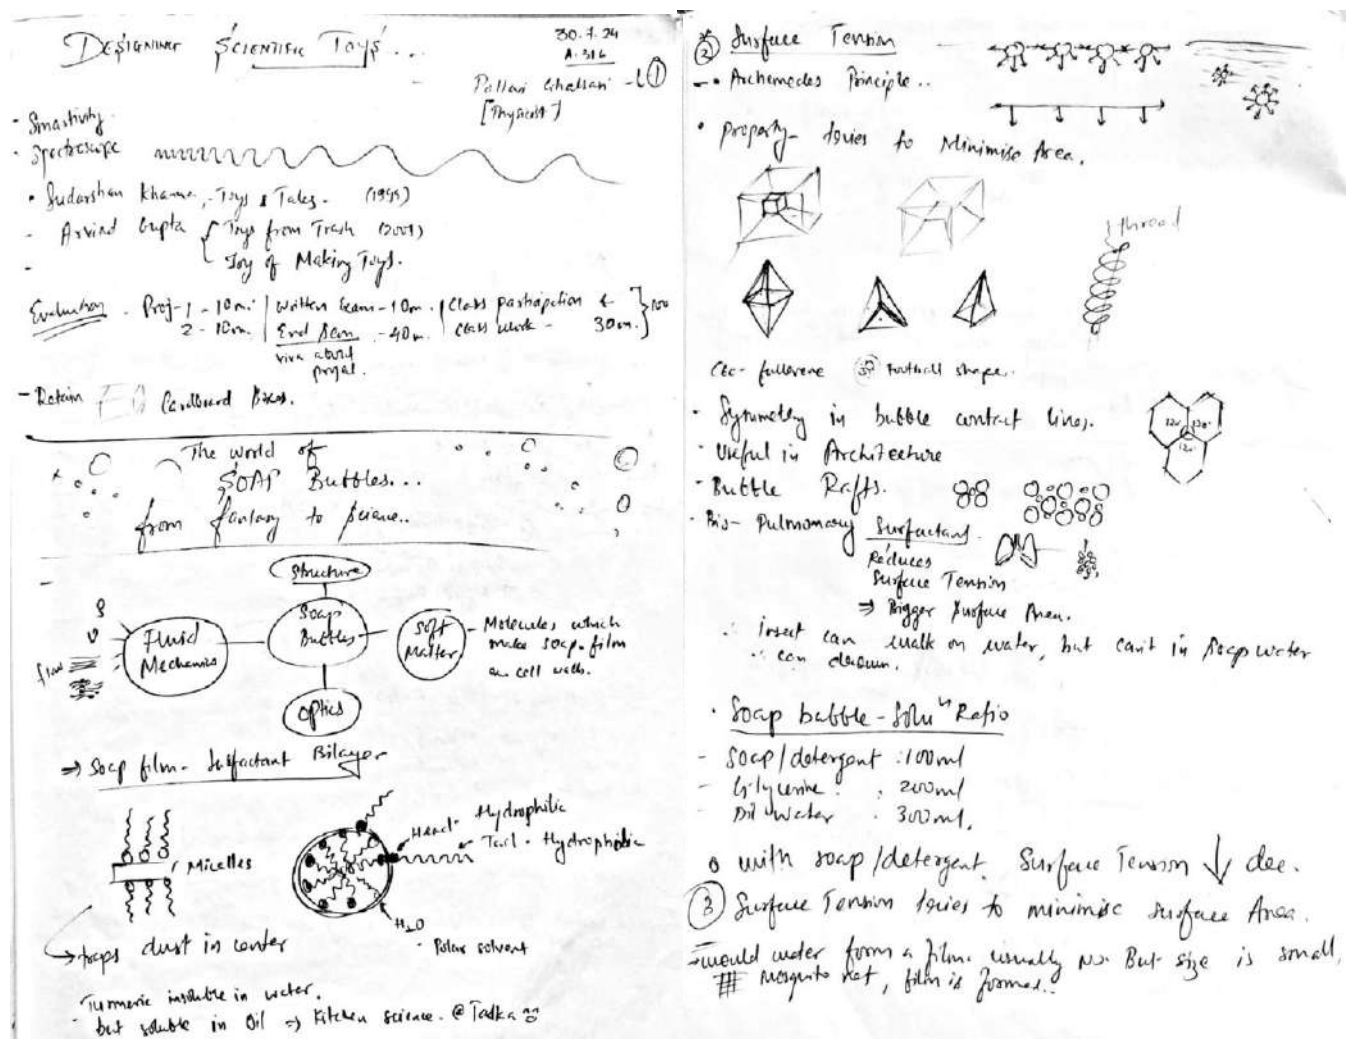 DESIGNING SCIENTIFIC TOYS...
30.7.24
A.316
①
[Physicist]
- Smartivity.
- Spectroscope
• Sudarshan Khanna, - Toys & Tales. (1999)
- Arvind Gupta { Toys from Trash (2001)
Joy of Making Toys.
-
Evaluation - Proj-1 - 10m. | Written Exam - 10m. | Class participation &
2 - 10m. | End Sem - 40m. | class work - 30m. } 100
viva about
project.
- Retain Cardboard Boxes.
The world of
SOAP Bubbles...
from fantasy to science..
Structure
Soap
Bubbles
Fluid
Mechanics
flow
Soft
Matter
- Molecules which
make soap-film
on cell walls.
Optics
⇒ Soap film - Surfactant Bilayer
Micelles
Head - Hydrophilic
Tail - Hydrophobic
H2O
- Polar solvent
→ traps dust in center
- Turmeric insoluble in water.
but soluble in Oil ⇒ Kitchen science. @ Tadka
② Surface Tension
- • Archemedes Principle..
• property - tries to Minimise Area.
thread
C60 - fullerene Football shape.
- Symmetry in bubble contact lines.
120° 120°
120°
- Useful in Architecture
- Bubble Rafts.
- Bio - Pulmonary Surfactant.
Reduces
Surface Tension
⇒ Bigger Surface Area.
∴ insect can walk on water, but can't in soap water
∴ can drown.
• Soap bubble - Solu^n Ratio
- Soap/detergent : 100ml
- Glycerine : 200ml
- Dil water : 300ml.
o with soap/detergent Surface Tension ↓ dec.
③ Surface Tension tries to minimise surface Area.
- would water form a film. usually no. But size is small,
# mosquito net, film is formed..